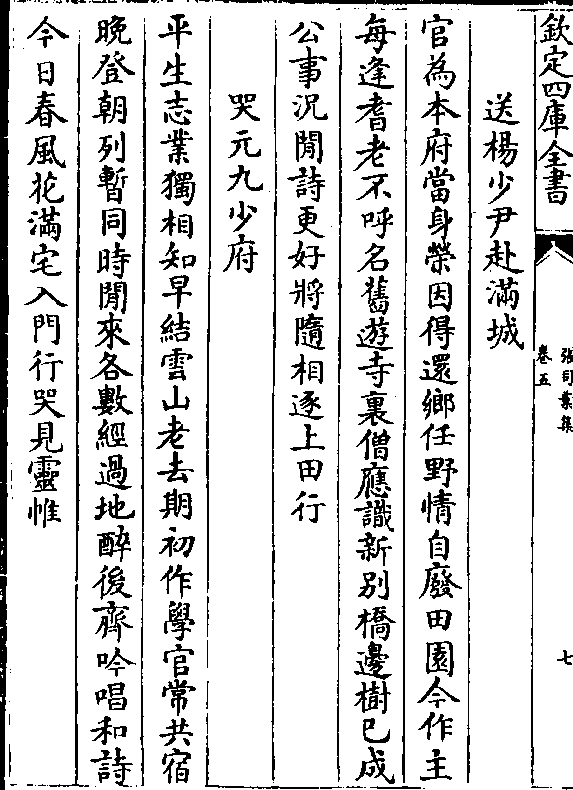 欽定四庫全書
張司業集
卷五
七
送楊少尹赴滿城
官為本府當身榮因得還鄉任野情自廢田園今作主
每逢耆老不呼名舊遊寺裏僧應識新别橋邊樹已成
公事況閒詩更好將隨相逐上田行
哭元九少府
平生志業獨相知早結雲山老去期初作學官常共宿
晚登朝列暫同時閒來各數經過地醉後齊吟唱和詩
今日春風花滿宅入門行哭見靈帷